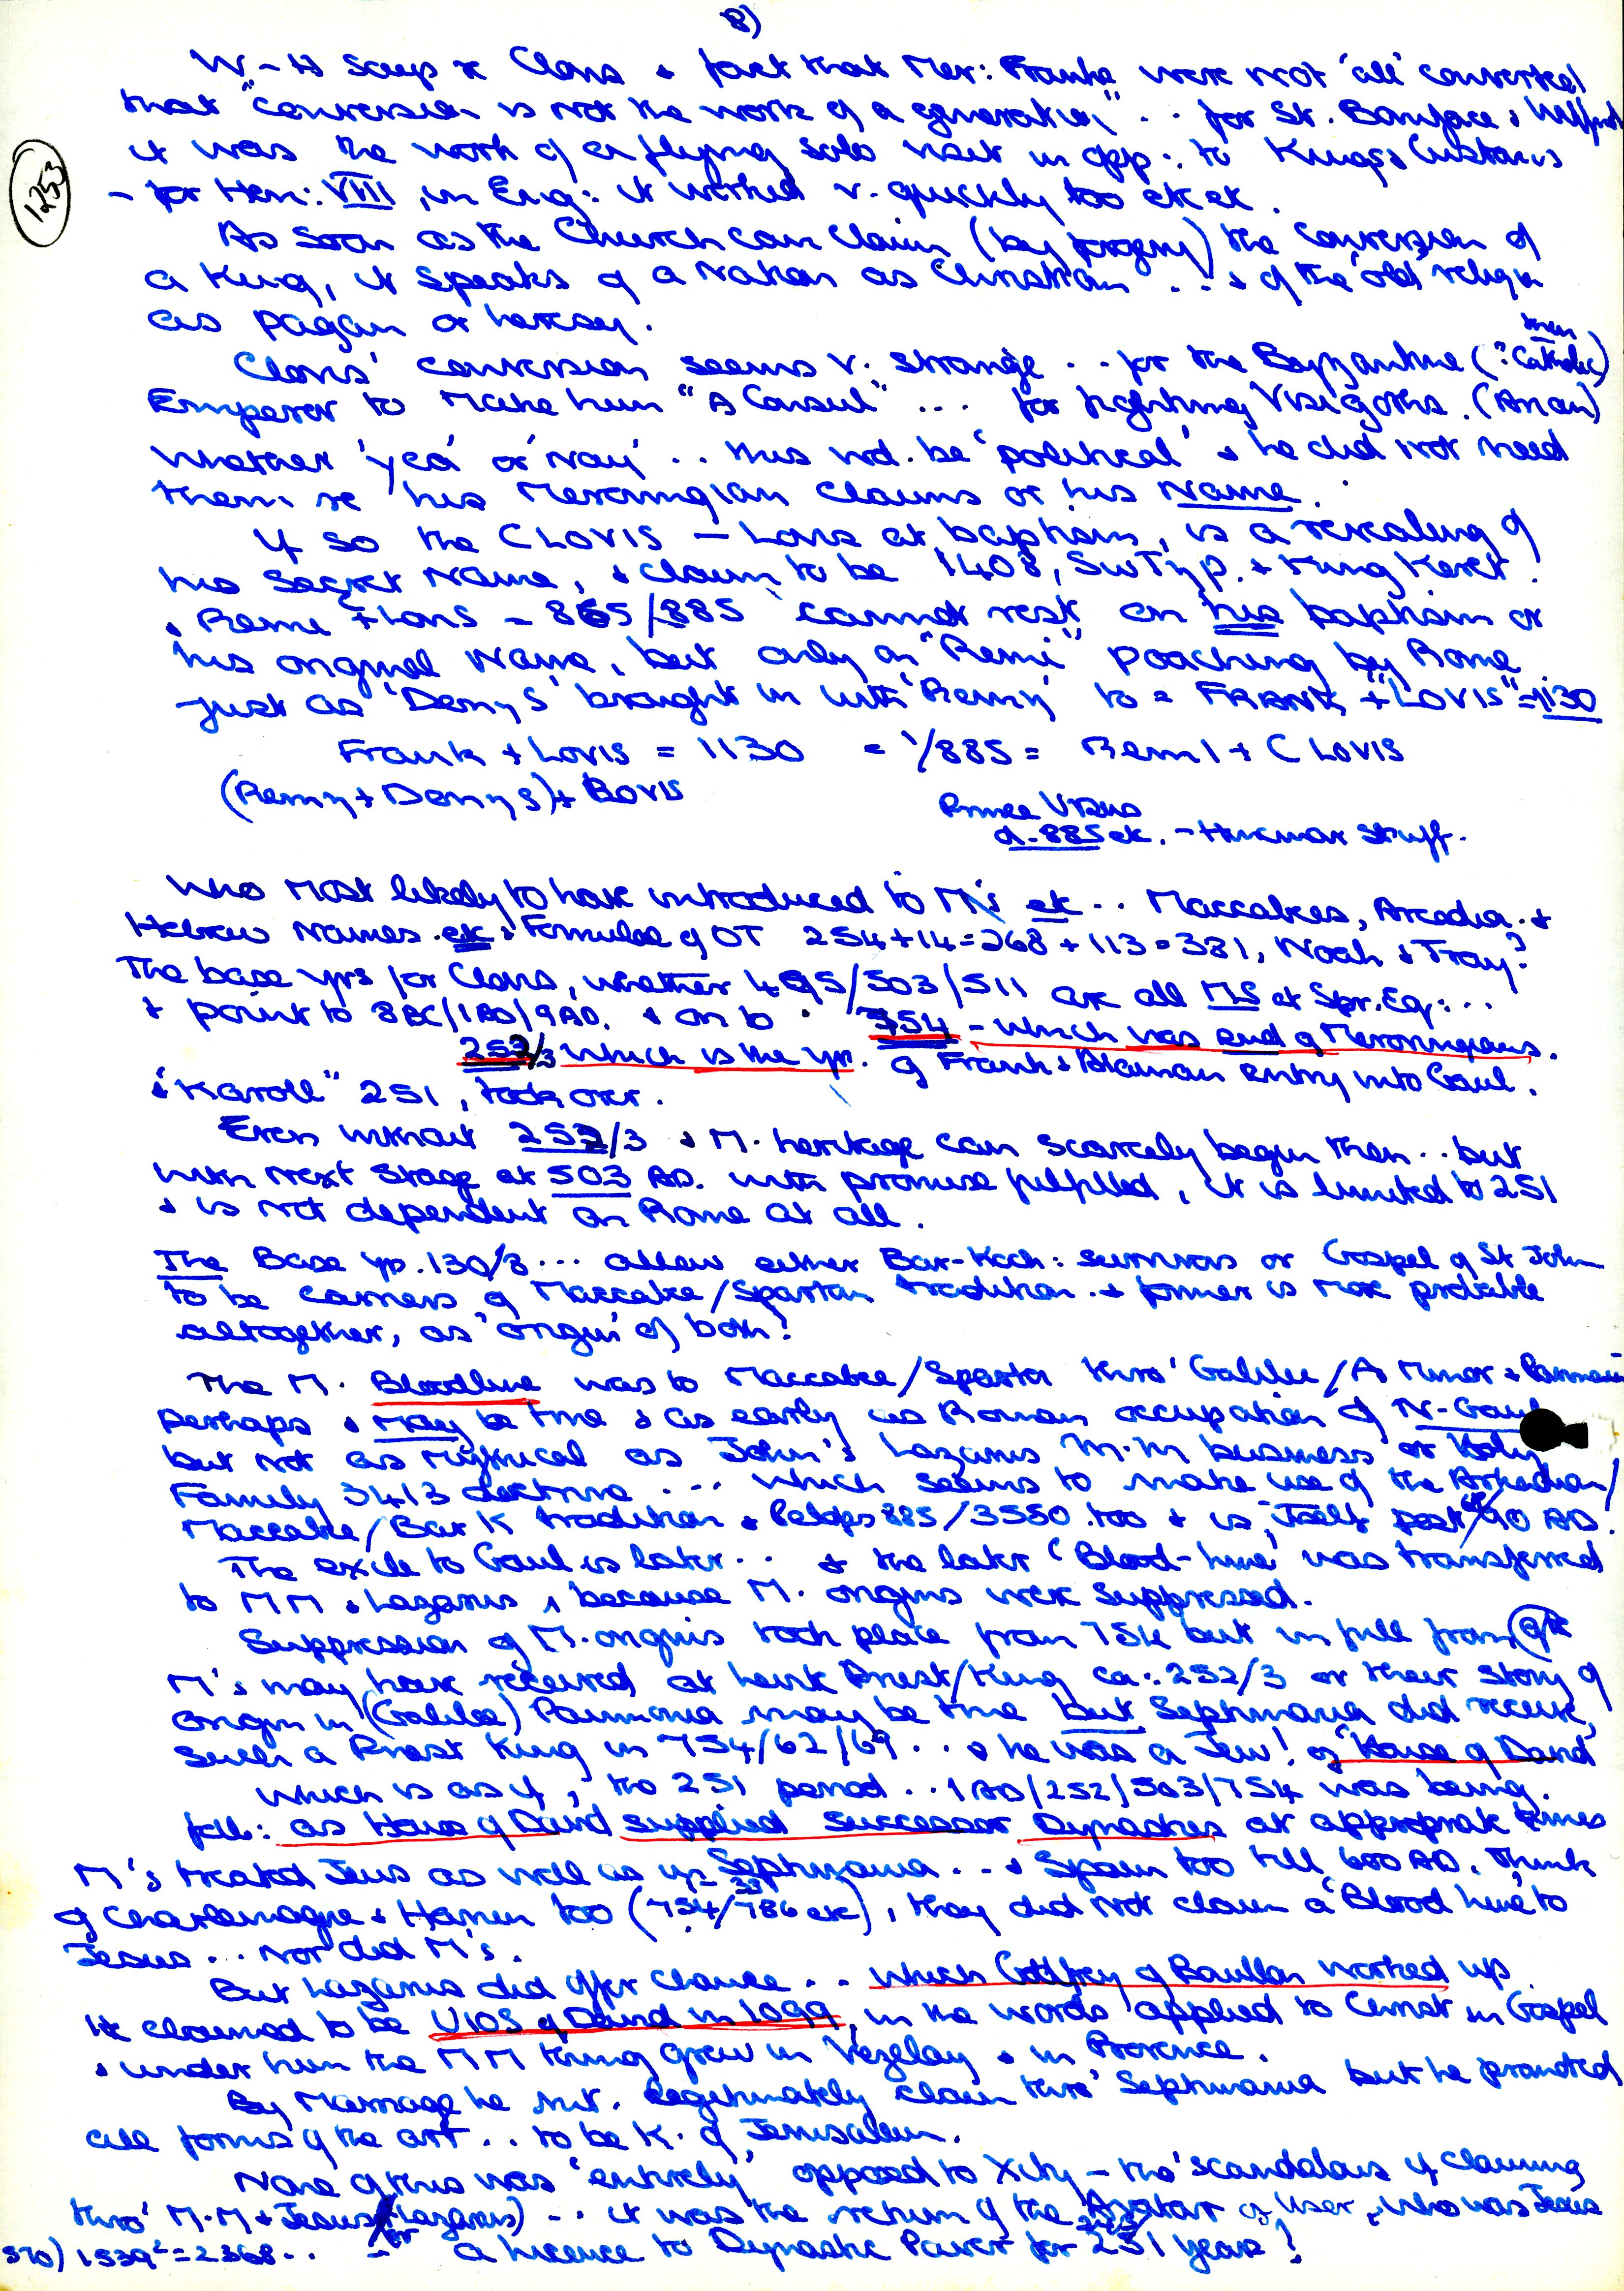 8)
W-H says re Clovis & fact that Mer: Franks were not 'all' converted
that "conversion is not the work of a generation" .. for St. Boniface &
it was the work of a flying solo visit in opp: to Kings
- for Hen: VIII, in Eng: it worked v. quickly too etc etc.
1253
As soon as the Church can claim (by forgery) the conversion of
a King, it speaks of a Nation as Christian ... & of the 'old' religion
as pagan or heresy.
then
Clovis' conversion seems v. strange .. for the Byzantine (?Catholic)
Emperor to make him "A Consul" ... for fighting Visigoths. (Arian)
Whether 'yea' or 'nay' .. this wd. be 'political' & he did not need
them re his Merovingian claims or his Name.
If so the CLOVIS – Lovis at baptism, is a revealing of
his Secret Name, & claim to be 1408, & King Keret!
& Remi + Lovis = 865/885 cannot rest on his baptism or
his original Name, but only on "Remi" poaching by Rome
just as 'Denys' brought in with 'Remy' to = FRANK + "LOVIS" = 1130
Frank + Lovis = 1130 = 1/885 = Remi + CLOVIS
(Remy + Denys) + BOVIS
Prince Ursus
d. 885 etc. - Hincmar Stuff.
Who most likely to have introduced to M's etc .. Maccabees, Arcadia &
Hebrew Names etc & Formulae of OT 254+14=268+113=381, Noah & Troy?
The base yrs for Clovis, whether 495/503/511 are all MS at Spr. Eq: ...
& point to 8BC/1AD/9AD. & on to 754 - which was end of Merovingians.
252/3 which is the yr. of Frank & Alaman entry into Gaul.
& "Karoll" 251, took over.
Even without 252/3 & M. heritage can scarcely begin then .. but
with next stage at 503 AD. with promise fulfilled, it is limited to 251
& is not dependent on Rome at all.
The Base yr. 130/3 ... allow either Bar-Koch: survivors or Gospel of St John
to be carriers of Maccabee/Spartan tradition & former is more probable
altogether, as 'origin' of both!
The M. Bloodline was to Maccabee/Sparta thro' Galilee/A Minor & Pannonia
perhaps & may be true & as early as Roman occupation of N-Gaul
but not as mythical as John's Lazarus M.M business or Holy
Family 3413 doctrine ... which seems to make use of the Arkadian/
Maccabee/Bar K tradition & Pelops 885/3550 too & is itself post 90 AD.
The exile to Gaul is later .. & the later 'Blood-line' was transferred
to MM & Lazarus, because M. origins were suppressed.
Suppression of M. origins took place from 754 but in full from
M's may have received at Priest/King ca: 252/3 or their story of
origin in (Galilee) Pannonia may be true but Septimania did receive
such a Priest King in 754/62/69 ... & he was a Jew! of 'House of David'
which is as if, the 251 period .. 1AD/252/503/754 was being
foll: as House of David supplied Successor Dynasties at appropriate times
M's treated Jews as well as in Septimania ... & Spain too till 600 AD. Think
of Charlemagne & Haroun too (754/786 etc), they did not claim a Blood line to
Jesus .. nor did M's.
But Lazarus did offer chance .. which Godfrey of Bouillon worked up
He claimed to be UIOS of David in 1099, in the words applied to Christ in Gospel
& under him the MM thing grew in Vezelay & in Provence.
By Marriage he mt. legitimately claim thro' Septimania but he promoted
all forms of the art .. to be K. of Jerusalem.
None of this was 'entirely' opposed to Xity - tho' scandalous if claiming
thro' M.M & Jesus (Lazarus) ... it was the return of the Avatar of User, who was Jesus
a licence to Dynastic Power for 251 years!
570) 1539² = 2368 ..